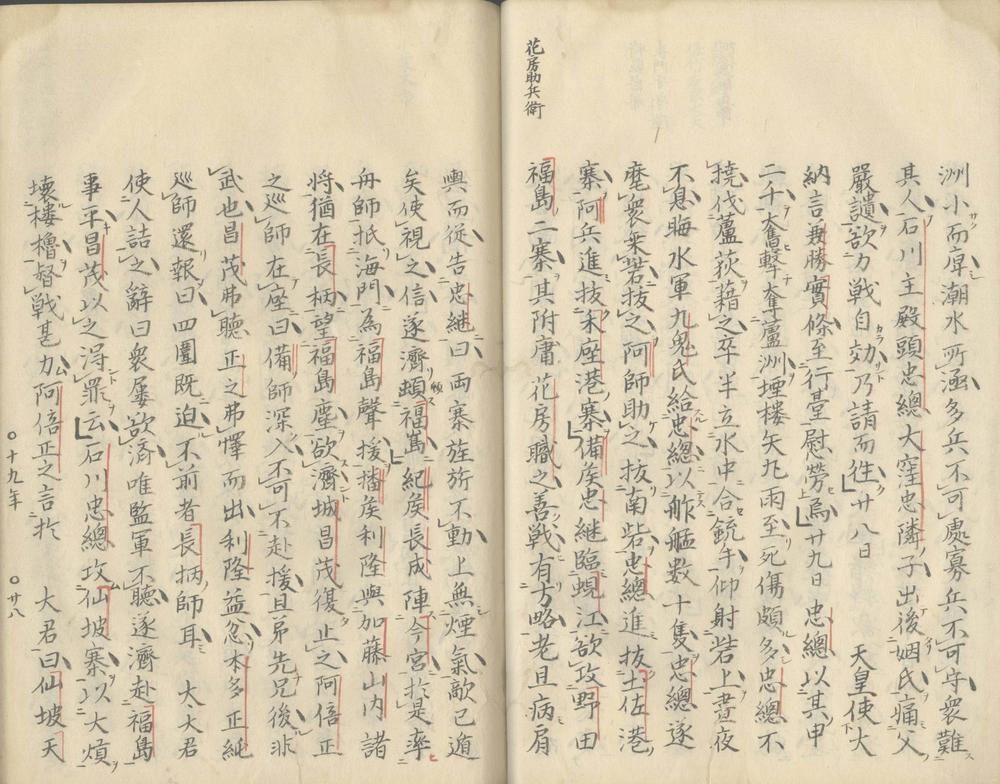 花房助兵衛
洲小而庳潮水所涵多兵不可處寡兵不可守衆難
其人石川主殿頭忠總大窪忠隣子出後姻氏痛父
嚴譴欲力戰自効乃請而徃廿八日　　天皇使大
納言兼勝實條至行臺慰勞焉廿九日　忠總以其甲
二千奮擊奪蘆洲堙樓矢丸雨至死傷頗多忠總不
撓伐蘆荻藉之卒半立水中合銃手仰射砦上晝夜
不息晦水軍九鬼氏給忠總以舴艋數十隻忠總遂
麾衆乗砦拔之阿師助之拔南砦忠總進拔土佐港
寨阿兵進拔末座港寨備矦忠継臨蜆江欲攻野田
福島二寨其附庸花房職之善戰有方略老且病肩
輿而従告忠継曰両寨旌旂不動上無煙氣敵已遁
矣使視之信遂濟頓福嶌紀矦長成陣今宮於是率
舟師抵海門為福島聲援播矦利隆與加藤山内諸
将猶在長柄望福島塵欲濟城昌茂復止之阿倍正
之巡師在座曰備師深入不可不赴援且弟先兄後非
武也昌茂弗聽正之弗懌而出利隆益忿本多正純
巡師還報曰四圍既迫不前者長柄師耳　太大君
使人詰之辭曰衆屢欲済唯監軍不聽遂濟赴福島
事平昌茂以之淂罪云石川忠總攻仙坡寨以大熕
壊樓櫓督戰甚力阿倍正之言於　　大君曰仙坡天
十九年
廿八